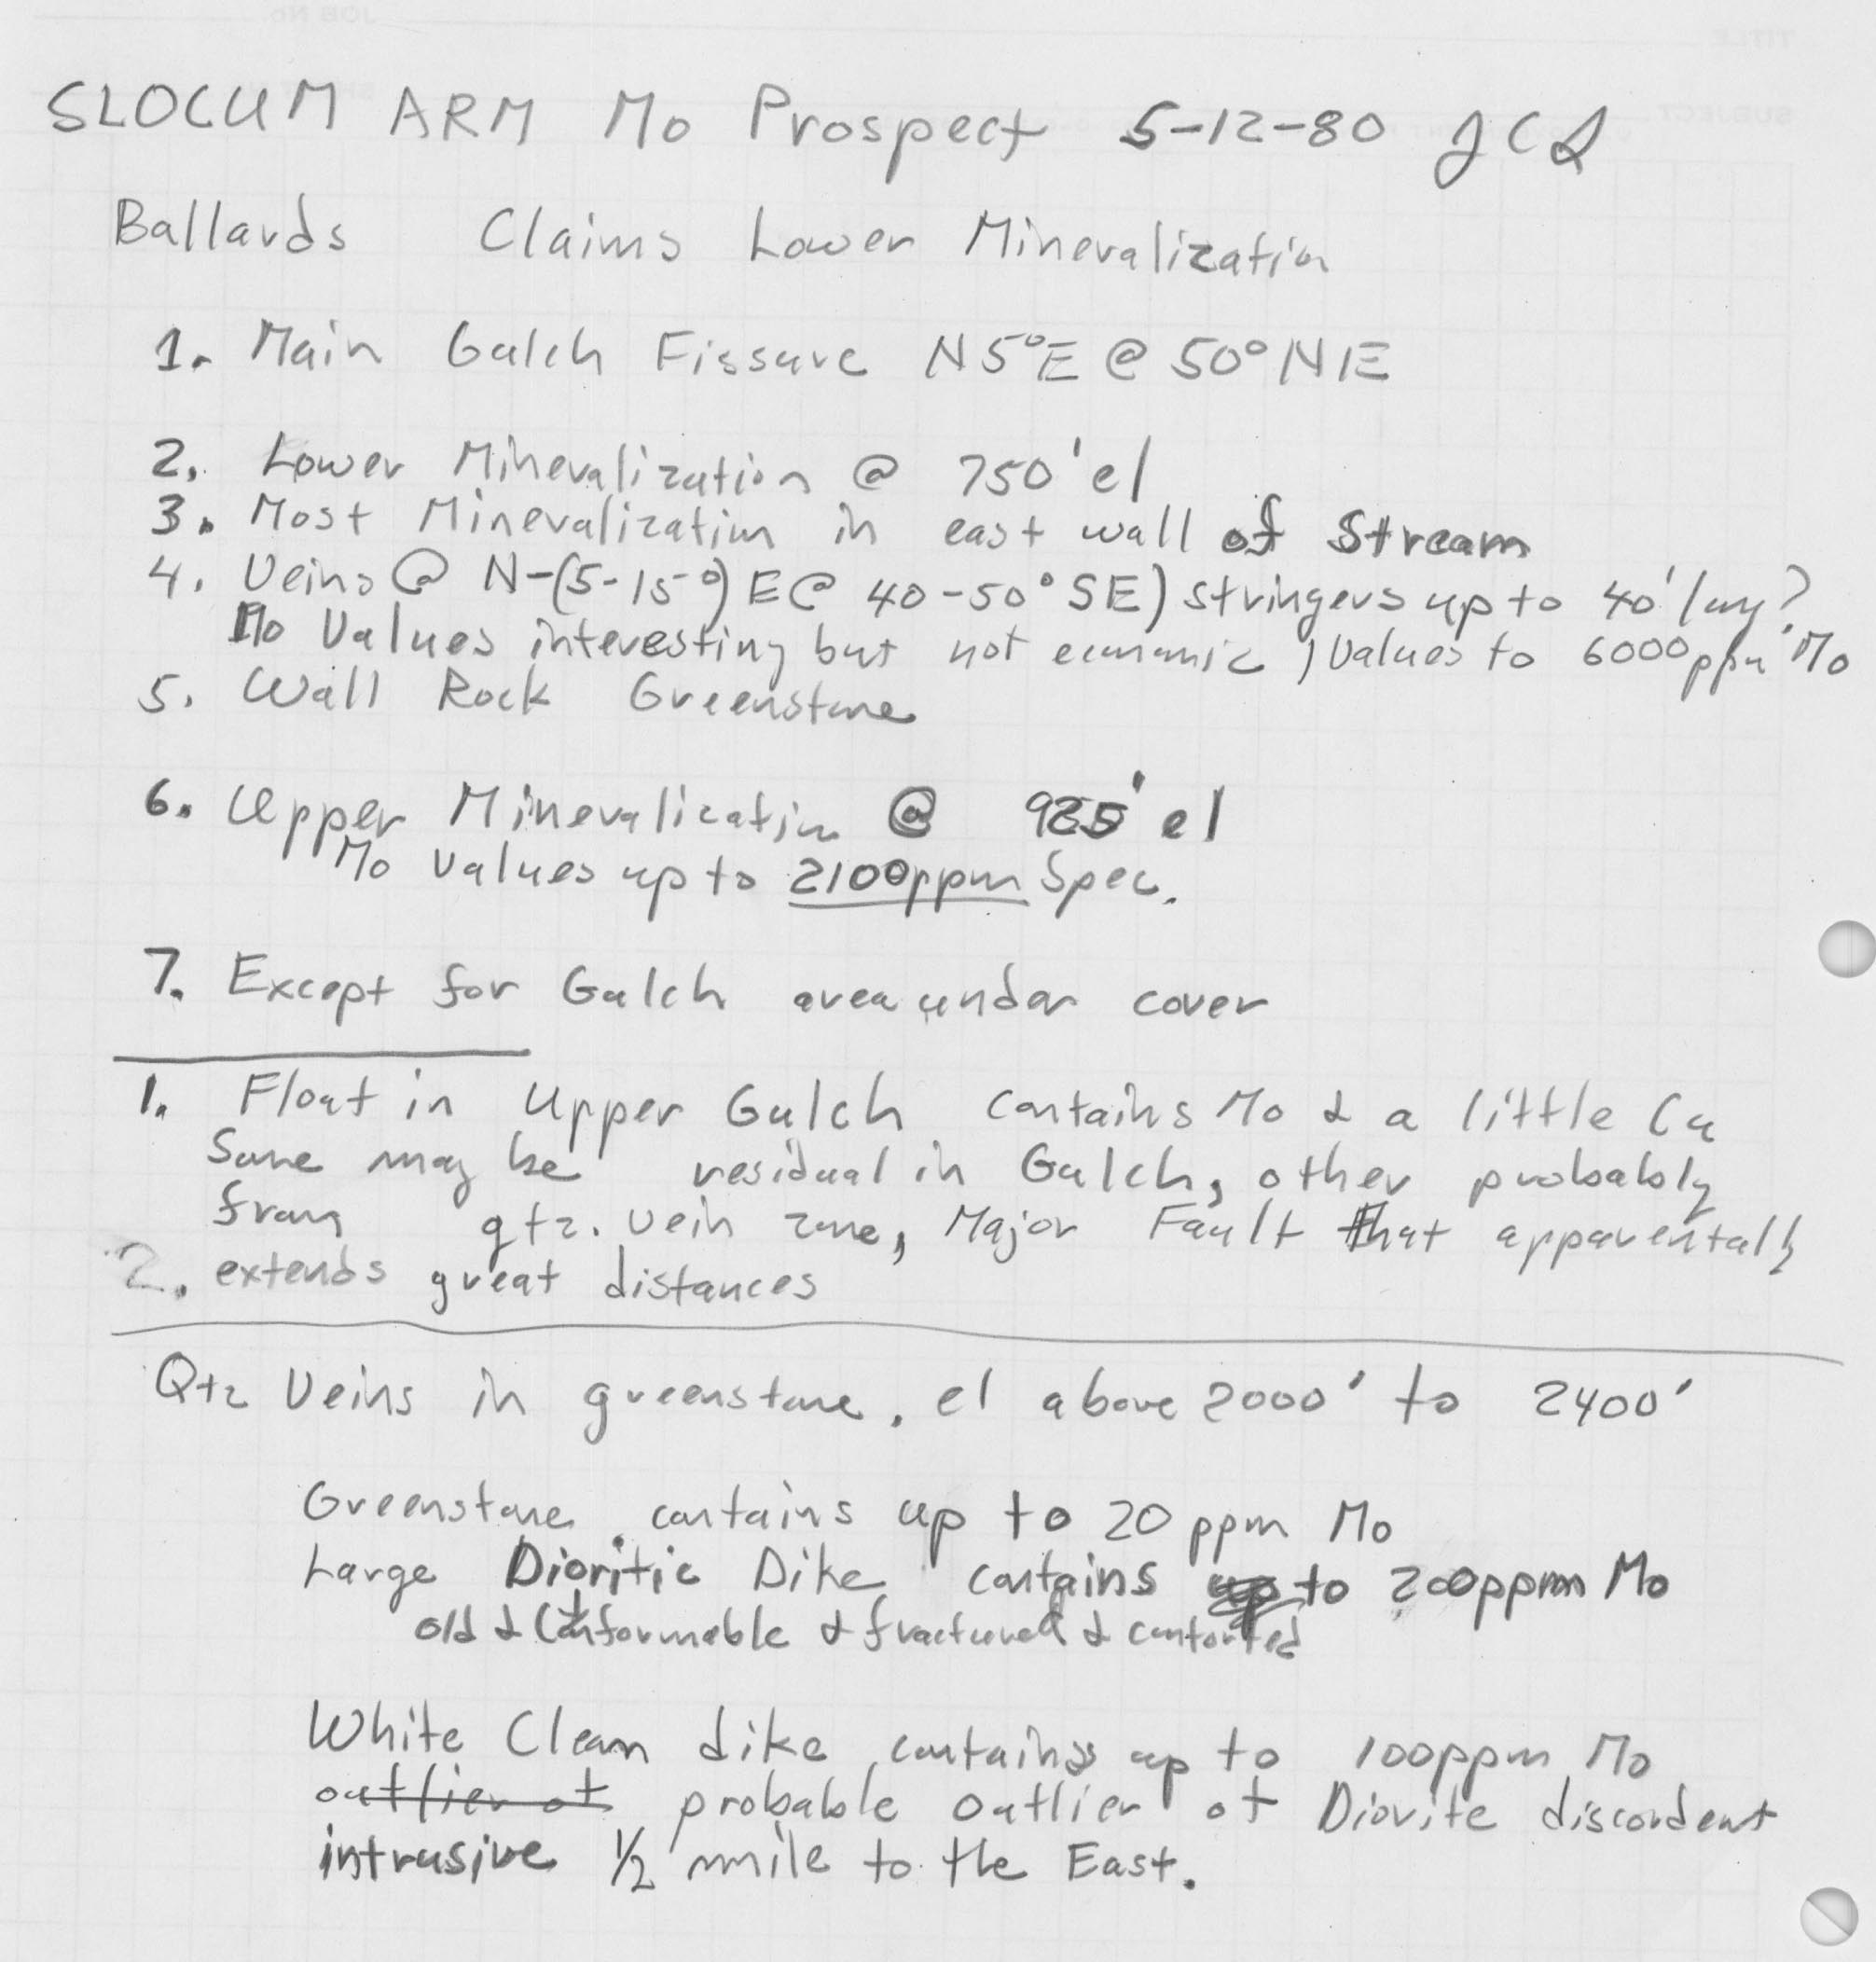 SLOCUM ARM Mo Prospect 5-12-80 JCS
Ballards Claims Lower Mineralization
1. Main Gulch Fissure N5°E @ 50° NE
2. Lower Mineralization @ 750' el
3. Most Mineralization in east wall of Stream
4. Veins @ N-(5-15°) E@ 40-50° SE) stringers up to 40' long?
Mo Values interesting but not economic, Values to 6000ppm Mo
5. Wall Rock Greenstone
6. Upper Mineralization @ 925' el
Mo Values up to 2100ppm Spec.
7. Except for Gulch area under cover
1. Float in Upper Gulch contains Mo & a little Cu
Some may be residual in Gulch, other probably
from qtz. vein zone, Major Fault that apparentally
2. extends great distances
Qtz Veins in greenstone, el above 2000' to 2400'
Greenstone contains up to 20 ppm Mo
Large Dioritic Dike contains up to 200ppm Mo
old & Conformable & fractured & contorted
White Clean dike contains up to 100ppm Mo
outlier of probable outlier of Diorite discordent
intrusive 1/2 mile to the East.